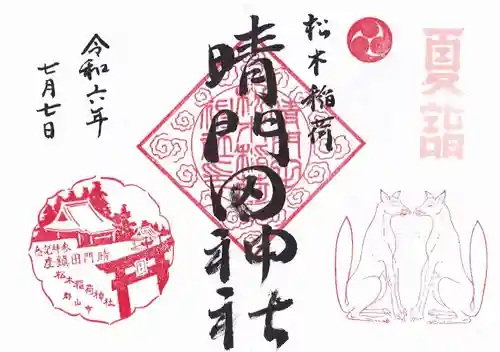 夏詣
松木稲荷
晴門田神社
令和六年
七月七日
参拝記念
晴門田鎮座
松木稲荷神社
郡山市